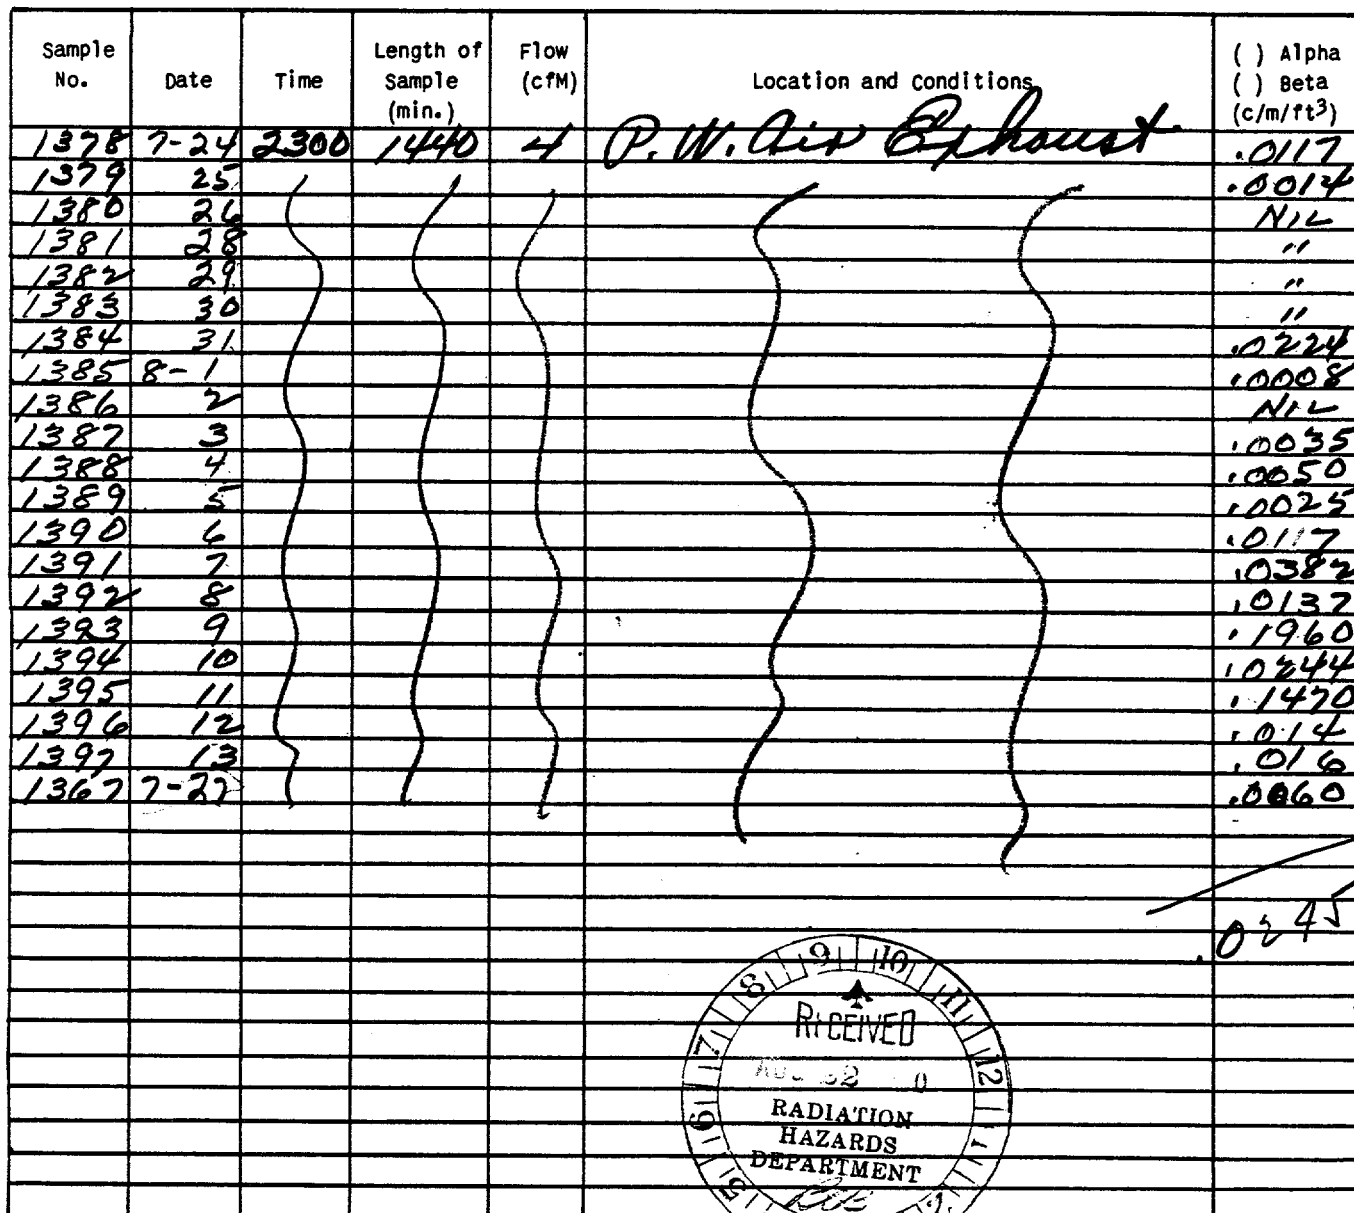 Sample No. Date Time Length of Sample (min.) Flow (cfM) Location and Conditions ( ) Alpha ( ) Beta (c/m/ft³)
1378 7-24 2300 1440 4 P.W. Air Exhaust .0117
1379 25 .0014
1380 26 NIL
1381 28 "
1382 29 "
1383 30 "
1384 31 .0224
1385 8-1 .0008
1386 2 NIL
1387 3 .0035
1388 4 .0050
1389 5 .0025
1390 6 .0117
1391 7 .0382
1392 8 .0137
1393 9 .1960
1394 10 .0244
1395 11 .1470
1396 12 .014
1397 13 .016
1367 7-27 .0060
.0245
8 9 10 11
RECEIVED
7 12
RADIATION
6 HAZARDS 1
DEPARTMENT
5 2